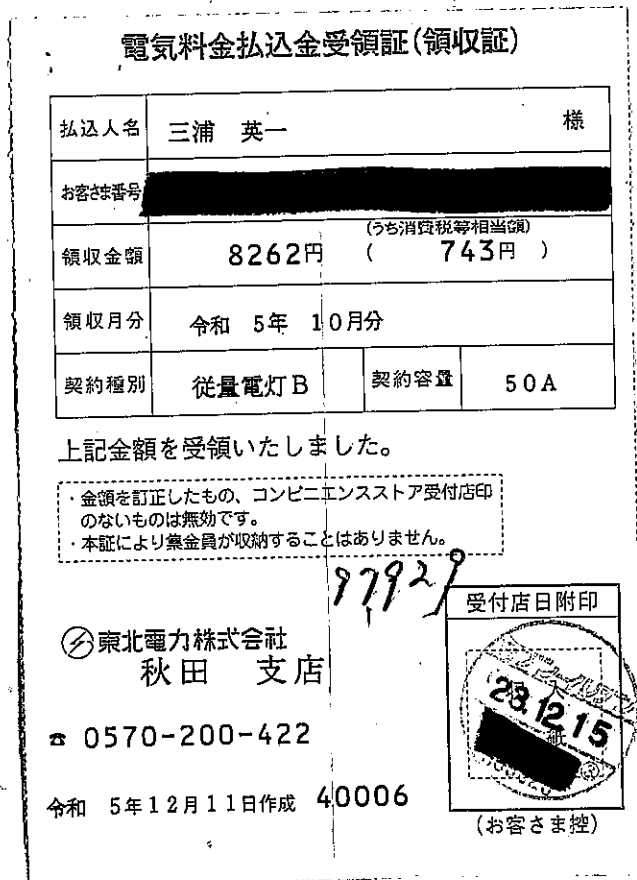 電気料金払込金受領証(領収証)
払込人名 三浦 英一 様
お客さま番号
(うち消費税等相当額)
領収金額 8262円 ( 743円 )
領収月分 令和 5年 10月分
契約種別 従量電灯B 契約容量 50A
上記金額を受領いたしました。
・金額を訂正したもの、コンビニエンスストア受付店印
のないものは無効です。
・本証により集金員が収納することはありません。
97929
受付店日附印
東北電力株式会社
秋田 支店
23.12.15
紙
☎ 0570-200-422
令和 5年12月11日作成 40006
(お客さま控)